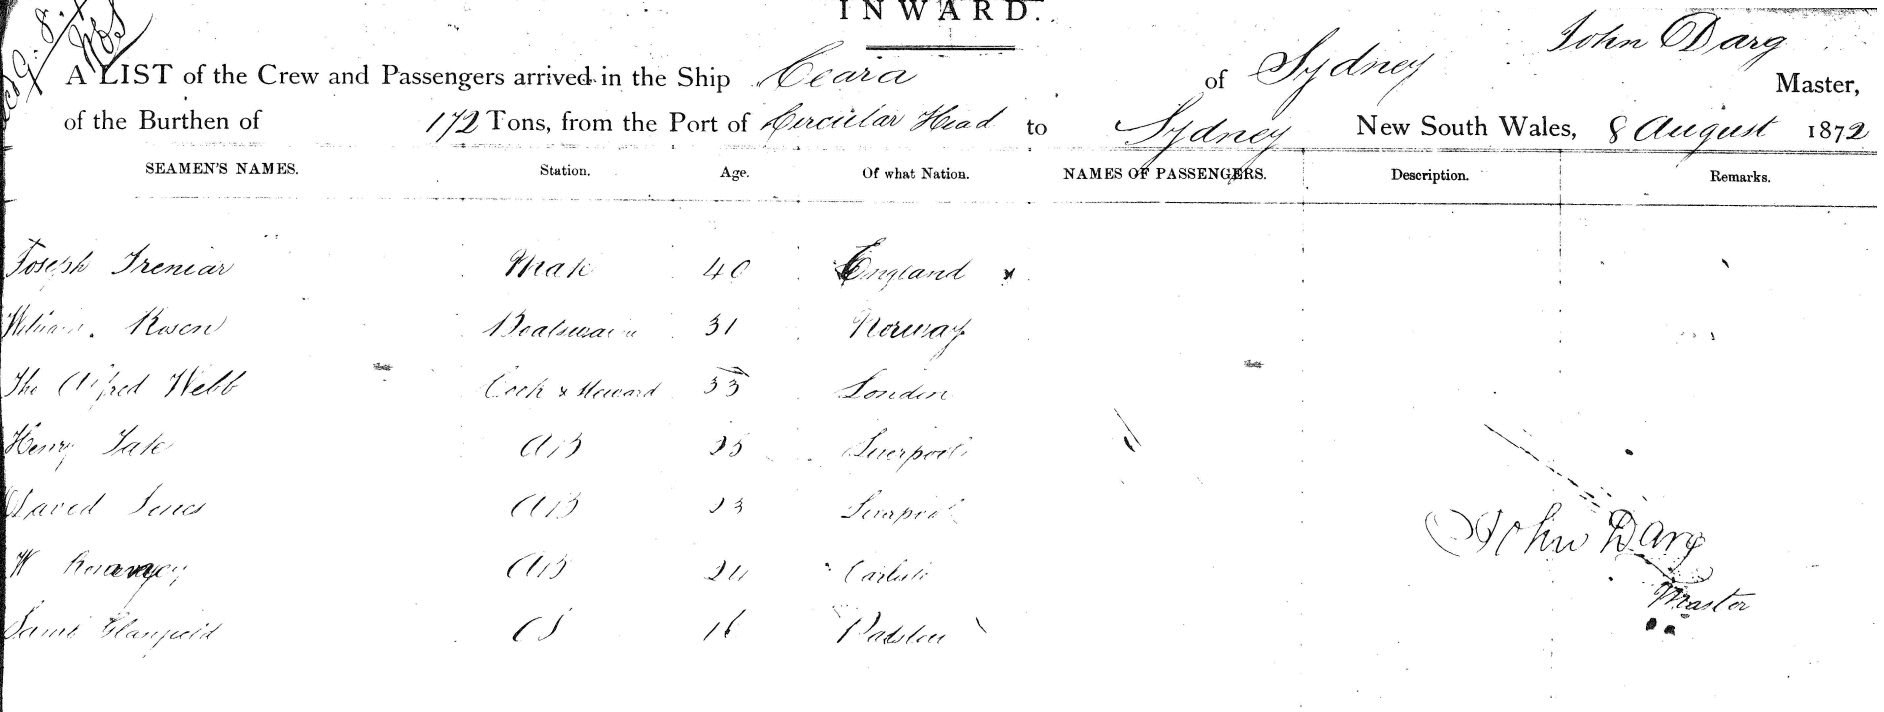 INWARD.
John Darg
A LIST of the Crew and Passengers arrived in the Ship Ceara of Sydney Master,
of the Burthen of 172 Tons, from the Port of Circular Head to Sydney New South Wales, 8 August 1872
SEAMEN'S NAMES. Station. Age. Of what Nation. NAMES OF PASSENGERS. Description. Remarks.
Joseph Mate 40 England
William Rosen Boatswain 31 Norway
Tho Alfred Webb Cook & Steward 33 London
Henry Tate AB 25 Liverpool
David Jones AB 23 Liverpool
W AB 24 Carlisle
Saml 16 Padstow
John Darg
Master